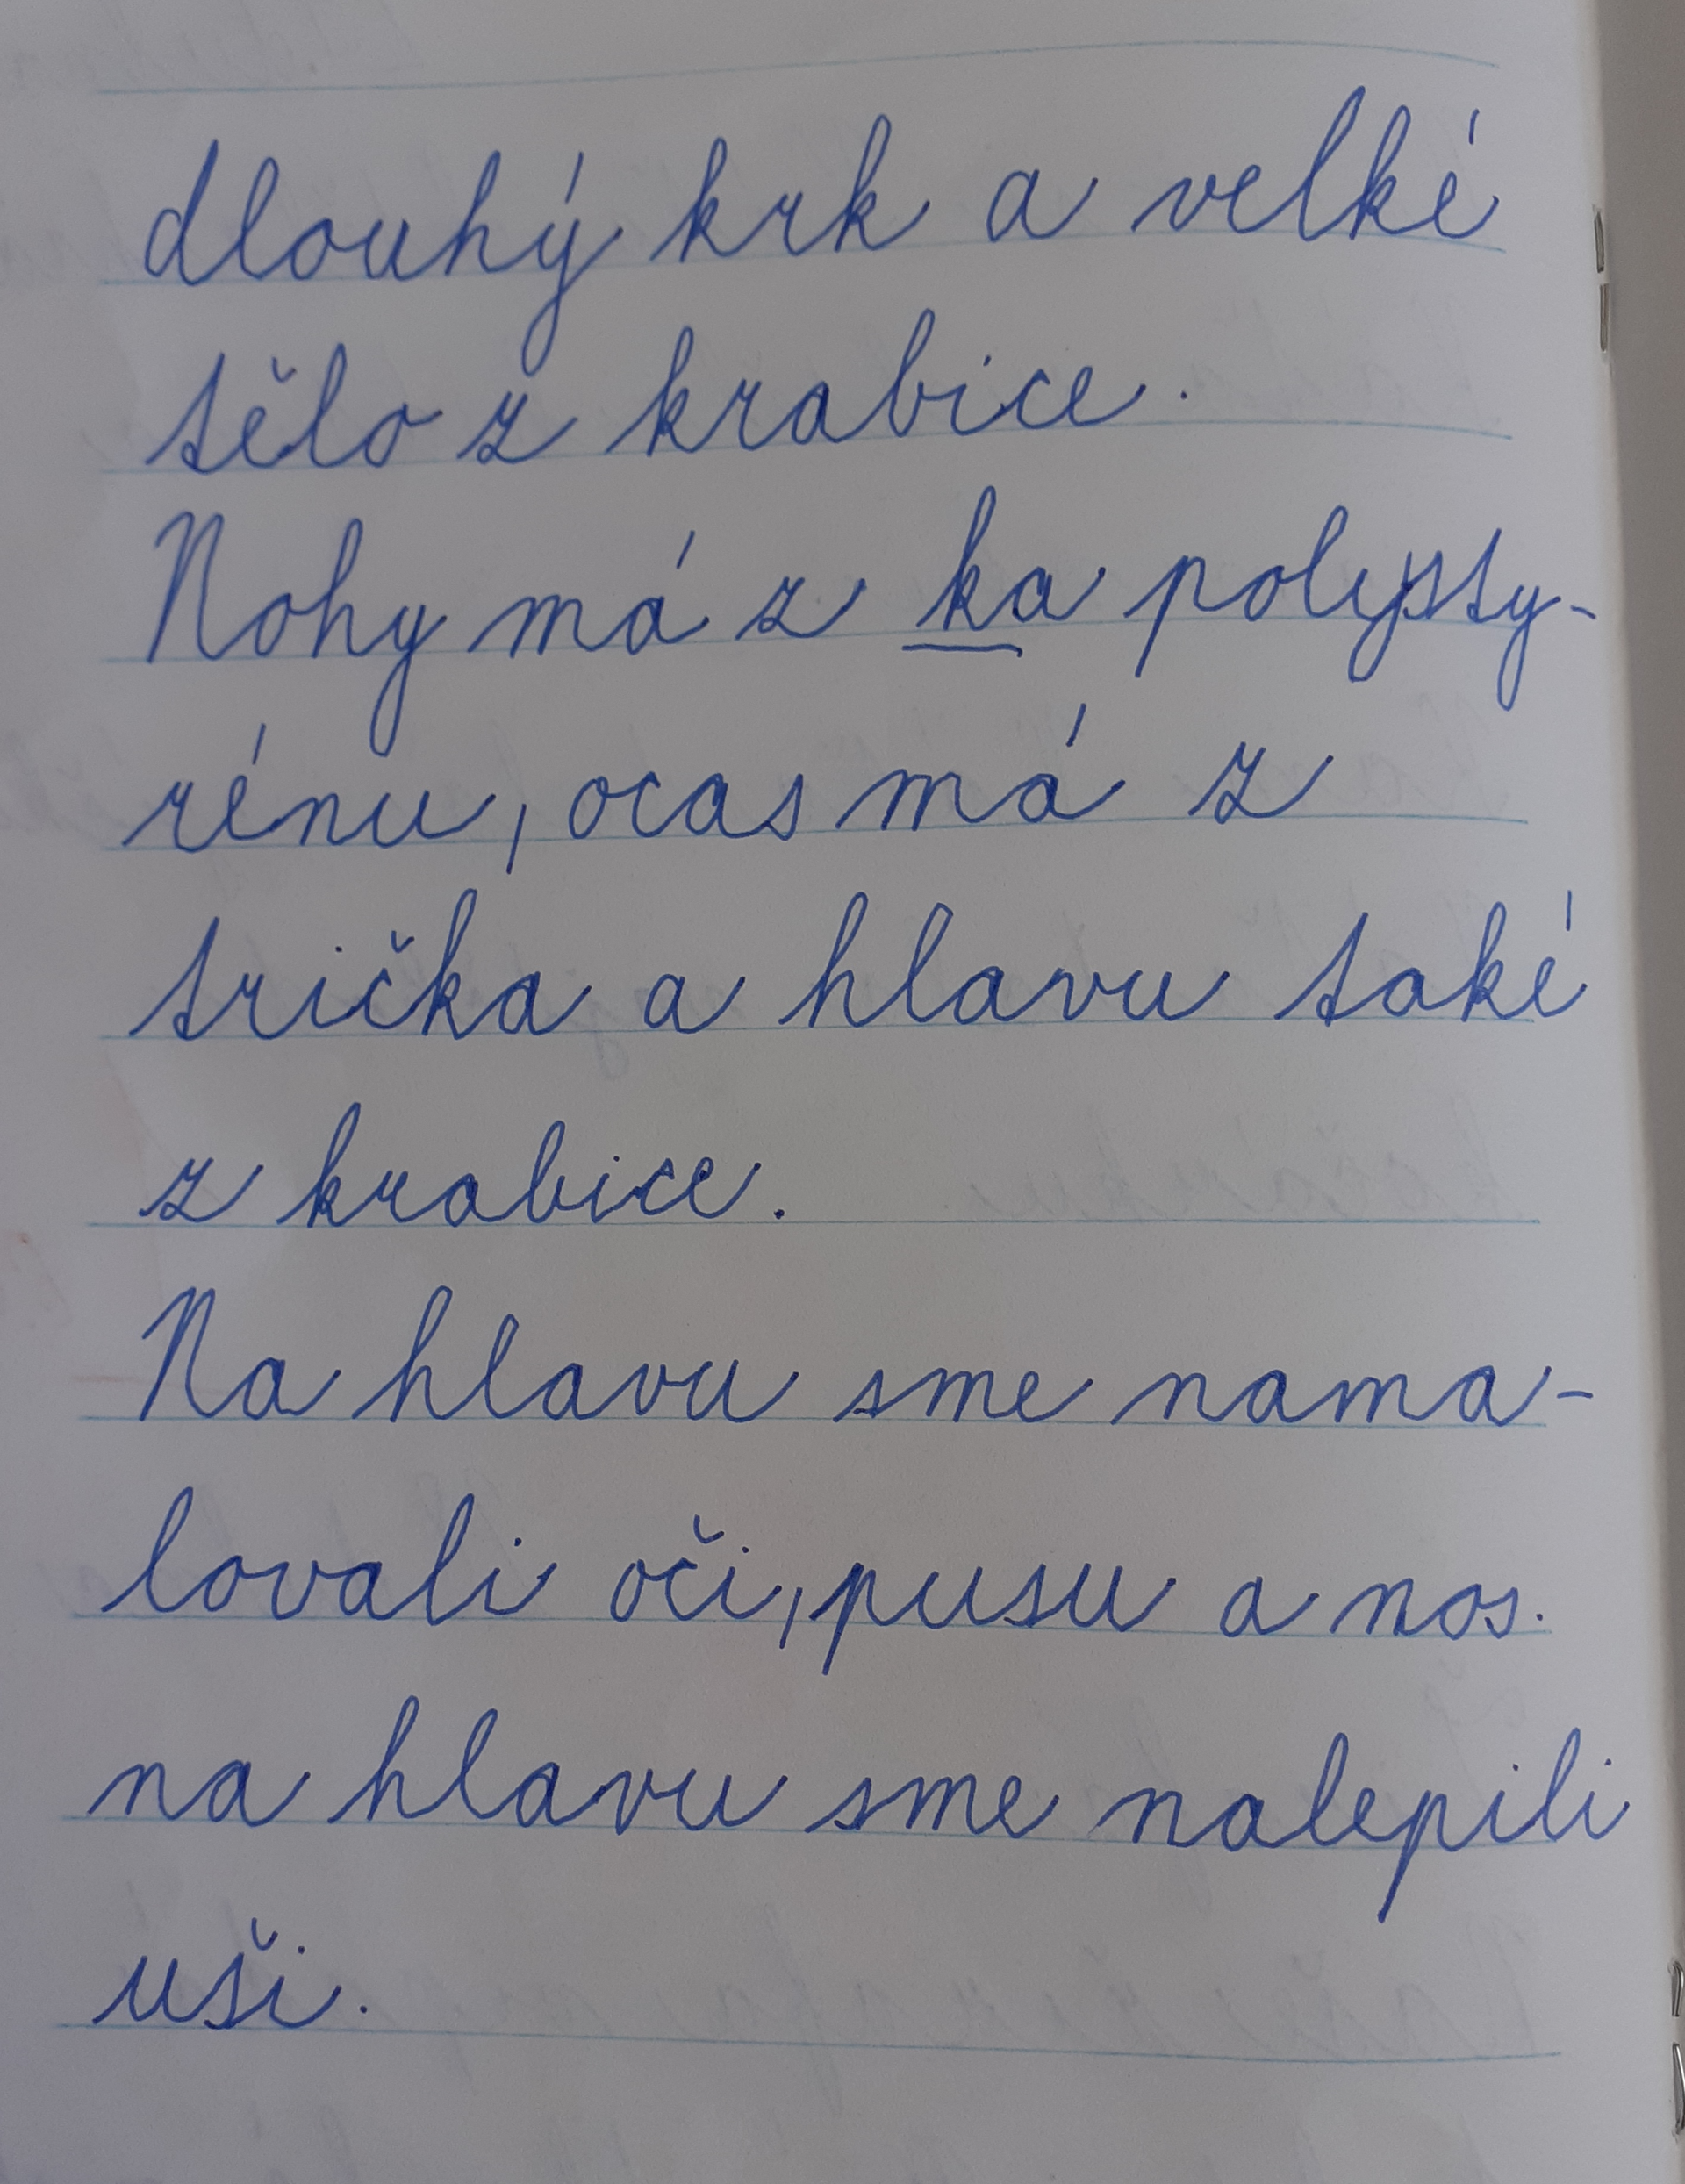 dlouhý krk a velké
tělo z krabice.
Nohy má z ka polysty-
rénu, ocas má z
trička a hlavu také
z krabice.
Na hlavu sme nama-
lovali oči, pusu a nos.
na hlavu sme nalepili
uši.